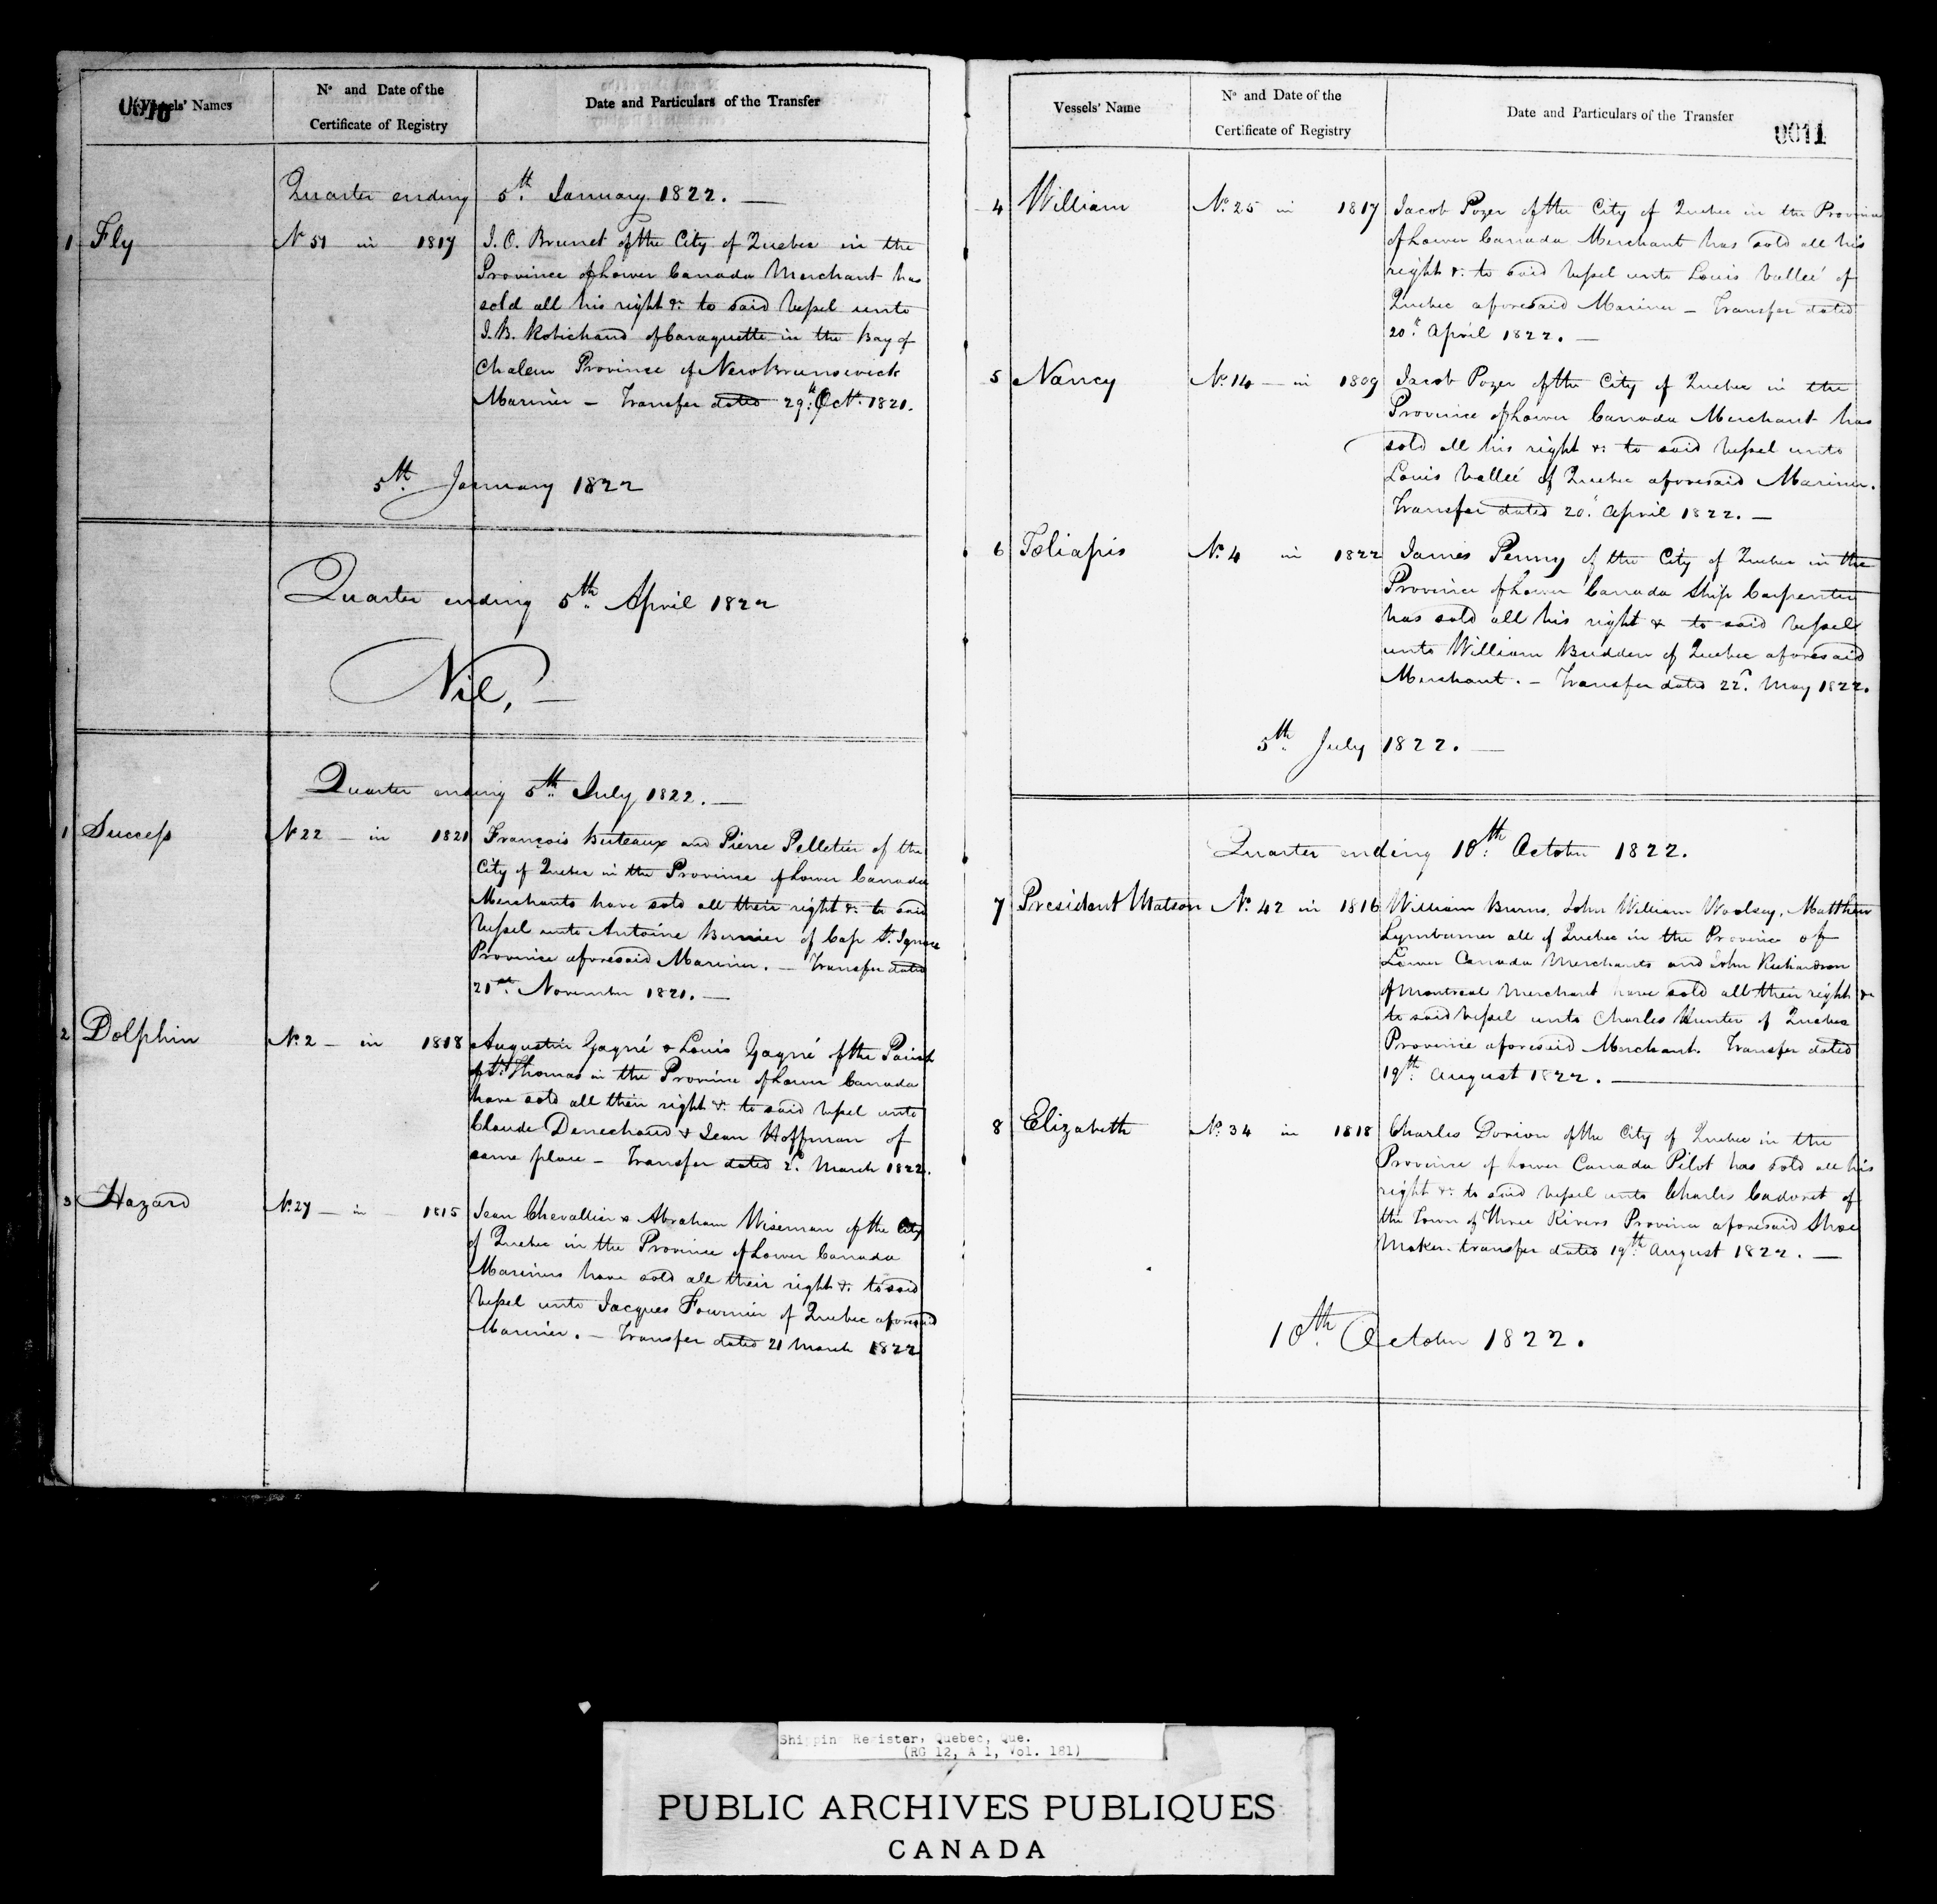 0010
Vessels' Names
No and Date of the
Certificate of Registry
Date and Particulars of the Transfer
Quarter ending 5th January 1822. —
1 Fly No 51 in 1817 J. O. Brunet of the City of Quebec in the
Province of Lower Canada Merchant has
sold all his right &c to said Vessel unto
J. B. Robichaud of Caraquette in the Bay of
Chaleur Province of New Brunswick
Mariner — Transfer dated 29th Oct. 1821.
5th January 1822
Quarter ending 5th April 1822
Nil, —
Quarter ending 5th July 1822. —
1 Success No 22 — in 1821 François Buteaux and Pierre Pelletier of the
City of Quebec in the Province of Lower Canada
Merchants have sold all their right &c to said
Vessel unto Antoine Bernier of Cap St. Ignace
Province aforesaid Mariner. — Transfer dated
21st November 1821. —
2 Dolphin No. 2 — in 1818 Augustin Gagné & Louis Gagné of the Parish
of St. Thomas in the Province of Lower Canada
have sold all their right &c to said Vessel unto
Claude Denechaud & Jean Hoffman of
same place — Transfer dated 2d March 1822.
3 Hazard No. 27 — in — 1815 Jean Chevallier & Abraham Wiseman of the City
of Quebec in the Province of Lower Canada
Mariners have sold all their right &c to said
Vessel unto Jacques Fournier of Quebec aforesaid
Mariner. — Transfer dated 21 March 1822
Vessels' Name
No and Date of the
Certificate of Registry
Date and Particulars of the Transfer
0011
4 William No. 25 in 1817 Jacob Pozer of the City of Quebec in the Province
of Lower Canada Merchant has sold all his
right &c to said Vessel unto Louis Valleé of
Quebec aforesaid Mariner — Transfer dated
20th April 1822. —
5 Nancy No. 14 — in 1809 Jacob Pozer of the City of Quebec in the
Province of Lower Canada Merchant has
sold all his right &c to said Vessel unto
Louis Valleé of Quebec aforesaid Mariner.
Transfer dated 20. April 1822. —
6 Toliapis No. 4 in 1822 James Penny of the City of Quebec in the
Province of Lower Canada Ship Carpenter
has sold all his right & to said Vessel
unto William Budden of Quebec aforesaid
Merchant. — Transfer dated 22d. May 1822.
5th July 1822. —
Quarter ending 10th October 1822.
7 President Matson No. 42 in 1816 William Burns, John William Woolsey, Matthew
Lymburner all of Quebec in the Province of
Lower Canada Merchants and John Richardson
of Montreal Merchant have sold all their right &c
to said Vessel unto Charles Hunter of Quebec
Province aforesaid Merchant. Transfer dated
19th August 1822. —
8 Elizabeth No. 34 in 1818 Charles Dorion of the City of Quebec in the
Province of Lower Canada Pilot has sold all his
right &c to said Vessel unto Charles Cadoret of
the Town of Three Rivers Province aforesaid Shoe
Maker. transfer dated 19th August 1822. —
10th October 1822.
Shipping Register, Quebec, Que.
(RG 12, A 1, Vol. 181)
PUBLIC ARCHIVES PUBLIQUES
CANADA